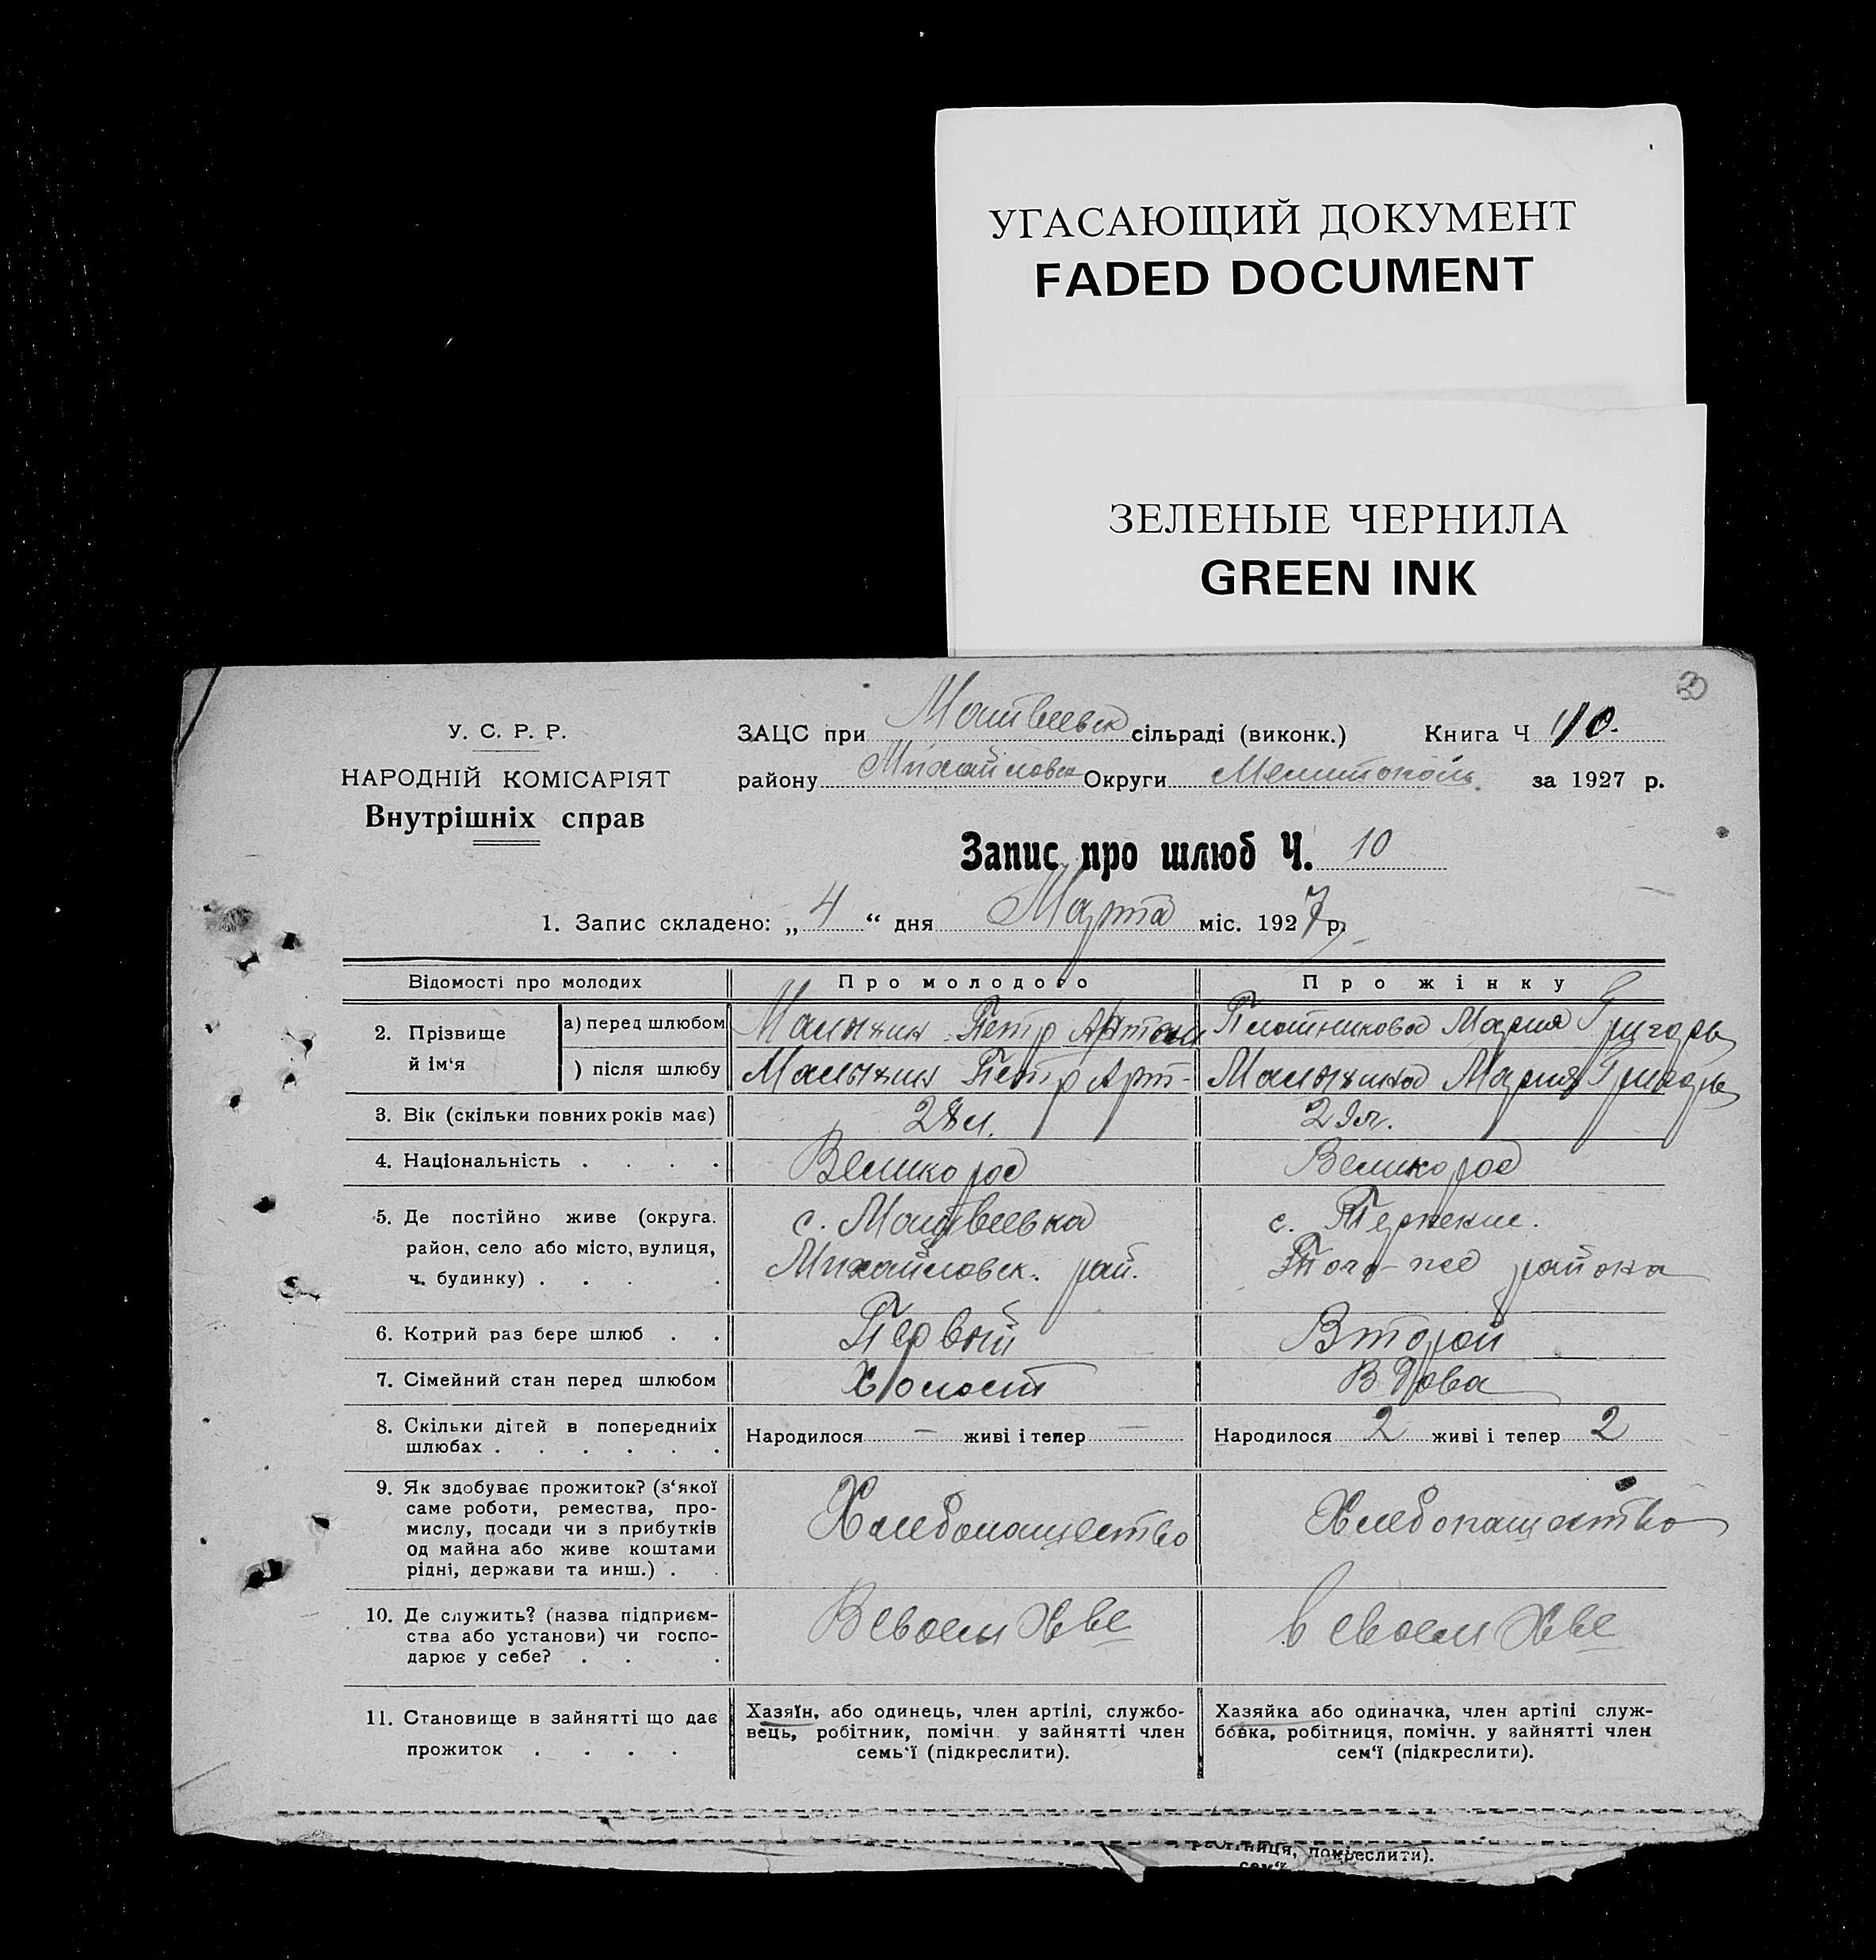 УГАСАЮЩИЙ ДОКУМЕНТ
FADED DOCUMENT
ЗЕЛЕНЫЕ ЧЕРНИЛА
GREEN INK
У. С. Р. Р.
НАРОДНІЙ КОМІСАРІЯТ
Внутрішніх справ
ЗАЦС при Матвеевск сільраді (виконк.) Книга Ч 10.
району Михайловск Округи Мелитополь за 1927 р.
Запис про шлюб Ч. 10
1. Запис складено: „ 4 “ дня Марта міс. 1927 р.
Відомості про молодих
Про молодого
Про жінку
2. Прізвище й ім‘я
а) перед шлюбом
Малыхин Петр Артем
Плотникова Мария Григорь
) після шлюбу
Малыхин Петр Арт-
Малыхина Мария Григорь
3. Вік (скільки повних років має)
28 л.
29 л.
4. Національність . . . .
Великорос
Великорос
5. Де постійно живе (округа.
район, село або місто, вулиця,
ч. будинку) . . . .
с. Матвеевка
Михайловск. рай.
с. Терпение.
Того-же района
6. Котрий раз бере шлюб . .
Первый
Второй
7. Сімейний стан перед шлюбом
Холост
Вдова
8. Скільки дітей в попередниіх
шлюбах . . . . . .
Народилося — живі і тепер —
Народилося 2 живі і тепер 2
9. Як здобуває прожиток? (з‘якої
саме роботи, ремества, про-
мислу, посади чи з прибутків
од майна або живе коштами
рідні, держави та инш.) . .
Хлебопашество
Хлебопашество
10. Де служить? (назва підприєм-
ства або установи) чи госпо-
дарює у себе? . . .
В своем Хве
В своем Хве
11. Становище в зайнятті що дає
прожиток . . . .
Хазяїн, або одинець, член артілі, службо-
вець, робітник, помічн. у зайнятті член
семь‘ї (підкреслити).
Хазяйка або одиначка, член артілі служ-
бовка, робітниця, помічн. у зайнятті член
сем‘ї (підкреслити).